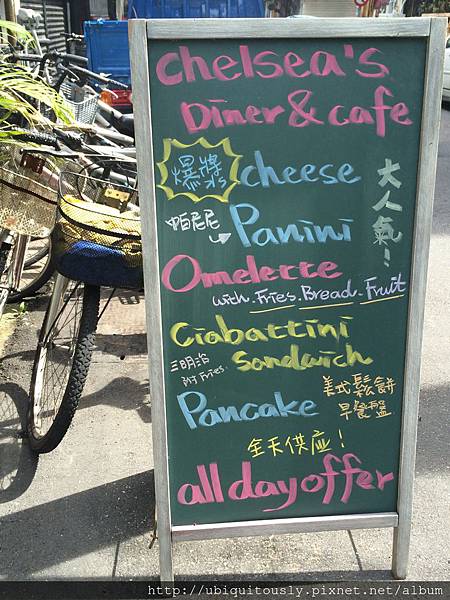 chelsea's
Diner & cafe
爆漿 cheese
大人氣!
帕尼尼 Panini
Omelette
with. Fries. Bread. Fruit
Ciabattini
三明治 Sandwich
附 Fries.
Pancake 美式鬆餅
早餐盤
全天供应!
all day offer
http://ubiquitously.pixnet.net/album